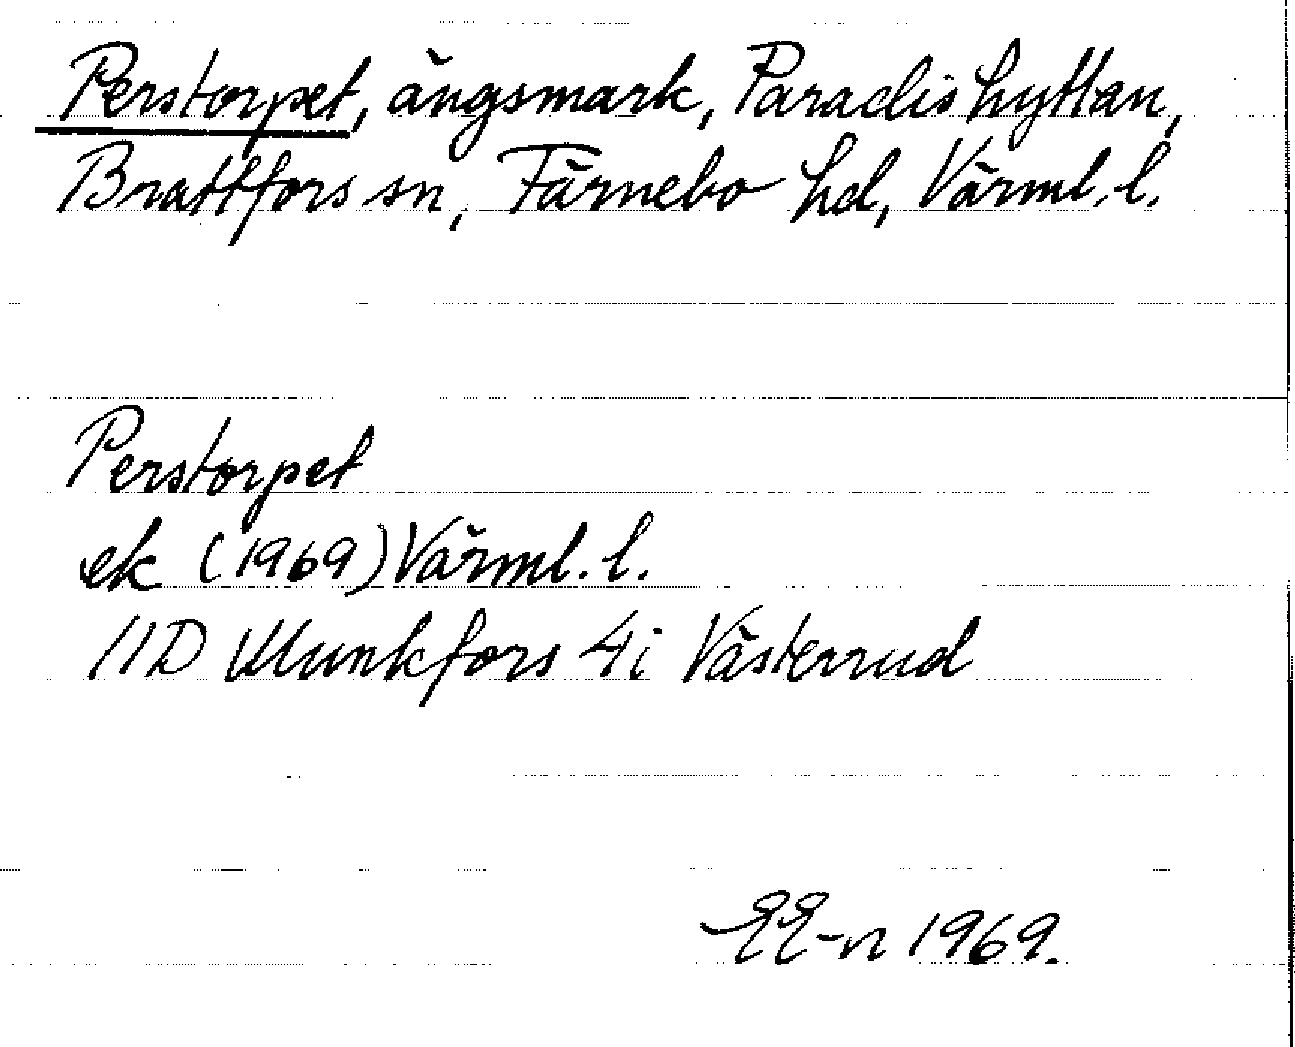 Perstorpet, ängsmark, Paradishyttan,
Brattfors sn, Färnebo hd, Värml. l.
Perstorpet
ek (1969) Värml. l.
11D Munkfors 4i Västerrud
EE-n 1969.